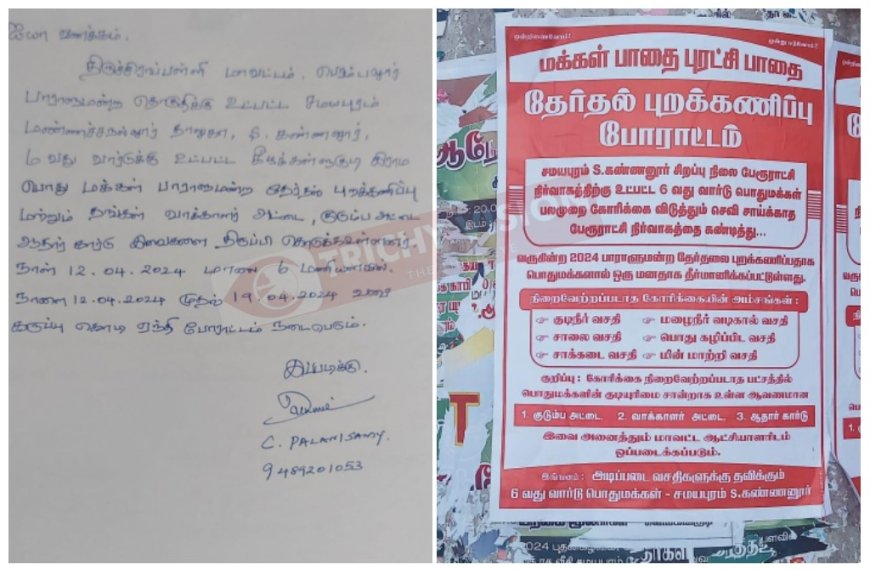 ஐயா வணக்கம்.
திருச்சிராப்பள்ளி மாவட்டம். பெரம்பலூர்
பாராளுமன்ற தொகுதிக்கு உட்பட்ட சமயபுரம்
மண்ணச்சநல்லூர் தாலுகா, S. கண்ணனூர்,
6 வது வார்டுக்கு உட்பட்ட கிராம
பொது மக்கள் பாராளுமன்ற தேர்தல் புறக்கணிப்பு
மற்றும் தங்கள் வாக்காளர் அட்டை, குடும்ப அட்டை
ஆதார் கார்டு இவைகளை திருப்பி கொடுக்கஉள்ளனர்
நாள் 12.04.2024 மாலை 6 மணியளவில்.
நாளை 12.04.2024 முதல் 19.04.2024 வரை
கருப்பு கொடி ஏந்தி போராட்டம் நடைபெறும்.
இப்படிக்கு
C. PALANISAMY
9489201053
TRICHY VISION
ஒன்றிணைவோம்! ஒன்றுபடுவோம்!
மக்கள் பாதை புரட்சி பாதை
தேர்தல் புறக்கணிப்பு
போராட்டம்
சமயபுரம் S.கண்ணனூர் சிறப்பு நிலை பேரூராட்சி
நிர்வாகத்திற்கு உட்பட்ட 6 வது வார்டு பொதுமக்கள்
பலமுறை கோரிக்கை விடுத்தும் செவி சாய்க்காத
பேரூராட்சி நிர்வாகத்தை கண்டித்து...
வருகின்ற 2024 பாராளுமன்ற தேர்தலை புறக்கணிப்பதாக
பொதுமக்களால் ஒரு மனதாக தீர்மானிக்கப்பட்டுள்ளது.
நிறைவேற்றப்படாத கோரிக்கையின் அம்சங்கள் :
குடிநீர் வசதி மழைநீர் வடிகால் வசதி
சாலை வசதி பொது கழிப்பிட வசதி
சாக்கடை வசதி மின் மாற்றி வசதி
குறிப்பு : கோரிக்கை நிறைவேற்றப்படாத பட்சத்தில்
பொதுமக்களின் குடியுரிமை சான்றாக உள்ள ஆவணமான
1. குடும்ப அட்டை. 2. வாக்காளர் அட்டை. 3. ஆதார் கார்டு
இவை அனைத்தும் மாவட்ட ஆட்சியாளரிடம்
ஒப்படைக்கப்படும்.
இங்ஙனம் : அடிப்படை வசதிகளுக்கு தவிக்கும்
6 வது வார்டு பொதுமக்கள் - சமயபுரம் S.கண்ணனூர்